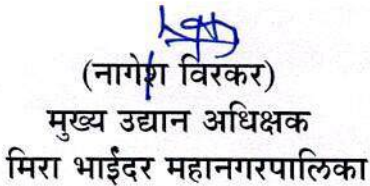 (नागेश विरकर)
मुख्य उद्यान अधिक्षक
मिरा भाईंदर महानगरपालिका